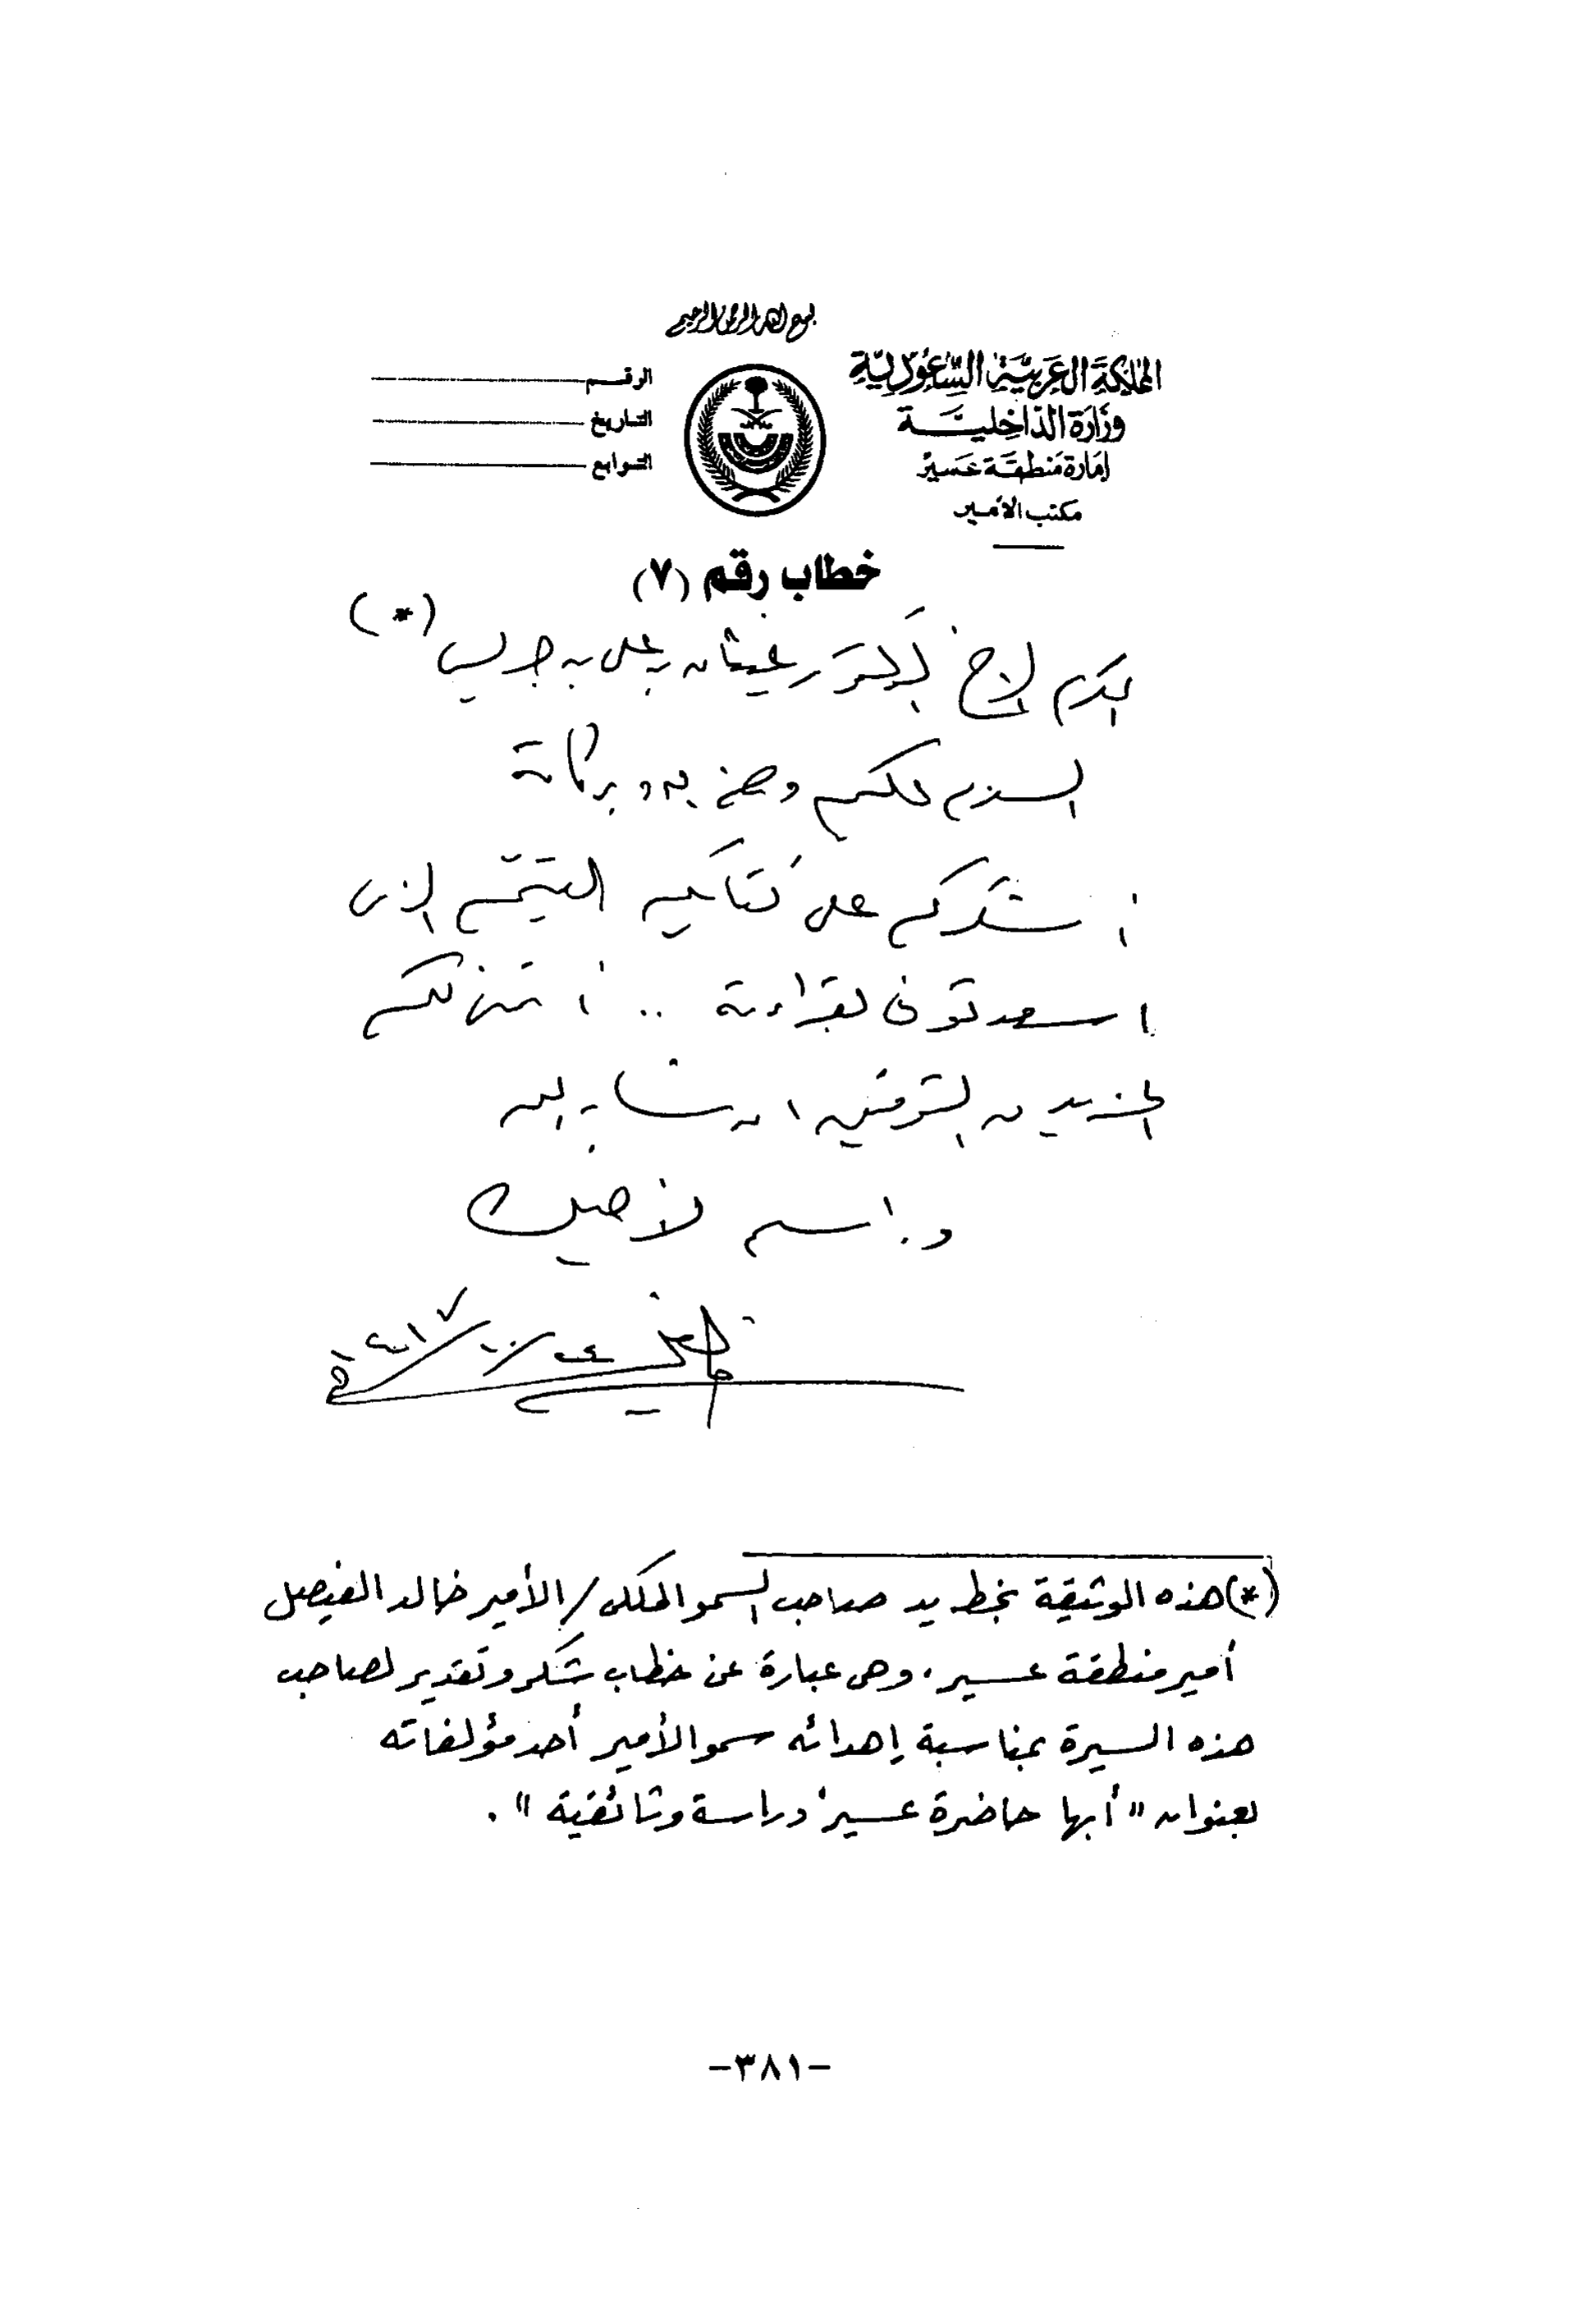 بسم الله الرحمن الرحيم
المملكة العربية السعودية
وزارة الداخلية
إمارة منطقة عسير
مكتب الأمير
الرقم
التاريخ
التوابع
خطاب رقم (٧)
المكرم الأخ الدكتور غيثان بن علي بن جريس (*)
السلام عليكم ورحمة الله وبركاته
أشكركم على كتابكم القيّم الذي
اسعدتوني بقراءته .. أتمنى لكم
المزيد من التوفيق ان شاء الله
ودمتم
(*) هذه الوثيقة بخط يد صاحب السمو الملكي / الأمير خالد الفيصل
أمير منطقة عسير، وهي عبارة عن خطاب شكر وتقدير لصاحب
هذه السيرة بمناسبة إهدائه سمو الأمير أحد مؤلفاته
بعنوان "أبها حاضرة عسير دراسة وثائقية".
-٣٨١-